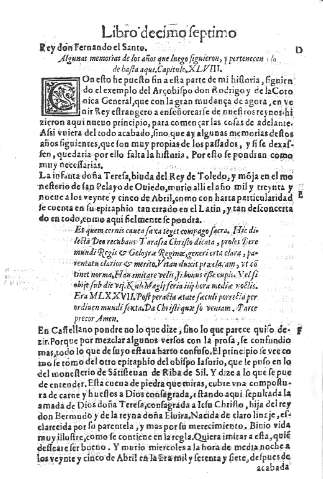 Libro decimo septimo
Rey don Fernando el Santo.
D
Algunas memorias de los años que luego siguieron, y pertenecen
de hasta aqui. Capitulo. XLVIII.
COn esto he puesto fin a esta parte de mi historia, siguien
do el exemplo del Arçobispo don Rodrigo y de la Coro
nica General, que con la gran mudança de agora, en ve
nir Rey estrangero a enseñorearse de nuestros reynos hi
zieron aqui nueuo principio, para començar las cosas de adelante.
Assi viuiera del todo acabado, sino que ay algunas memorias destos
años siguientes, que son muy propias de los passados, y si se dexas-
sen, quedaria por ello falta la historia. Por esto se pondran como
muy necessarias.
La infanta doña Teresa, biuda del Rey de Toledo, y mõja en el mo
nesterio de san Pelayo de Ouiedo, murio alli el año mil y treynta y
nueue a los veynte y cinco de Abril, como con harta particularidad
se cuenta en su epitaphio tan errado en el Latin, y tan desconcerta
do en todo, como aqui fielmente se pondra.
E
Et quem cernis cauea saxa tegit compago sacra. Hic di
lecta Deo recubans Tarasia Christo dicata, proles Bere
mundi Regis & Geloyra Reginæ, generis orta clara, pa-
rentatu clarior & merito. Vitam duxit præclaram, vt cõ
tinet norma, Hanc imitare velis, si bonus esse cupis.
obijt sub die vij. Kal. Maij, feria iiij hora mediæ noctis.
Era MLXXVII. Post peracta ætate saeculi porrecta per
ordinem mundi sexta. Da Christi quæsu veniam. Parce
precor, Amen.
En Castellano pondre no lo que dize, sino lo que parece quiso de-
zir. Porque por mezclar algunos versos con la prosa, se confundio
mas, todo lo que de suyo estaua harto confuso. El principio se vee co
mo se tomó del otro epitaphio del obispo Iasorio, que le puso en lo
del monesterio de Sãtisteuan de Riba de Sil. Y dize a lo que se pue
de entender. Esta cueua de piedra que miras, cubre vna compostu-
ra de carne y huessos a Dios consagrada, estando aqui sepultada la
amada de Dios doña Teresa, consagrada a Iesu Christo, hija del rey
don Bermudo y de la reyna doña Eluira. Nacida de claro linaje, es-
clarecida por su parentela, y mas por su merecimiento. Biuio vida
muy illustre, como se contiene en la regla. Quiera imitar a esta, quiẽ
dessea ser bueno. Y murio miercoles a la hora de media noche a
los veynte y cinco de Abril en la Era mil y setenta y siete, despues de
acabada